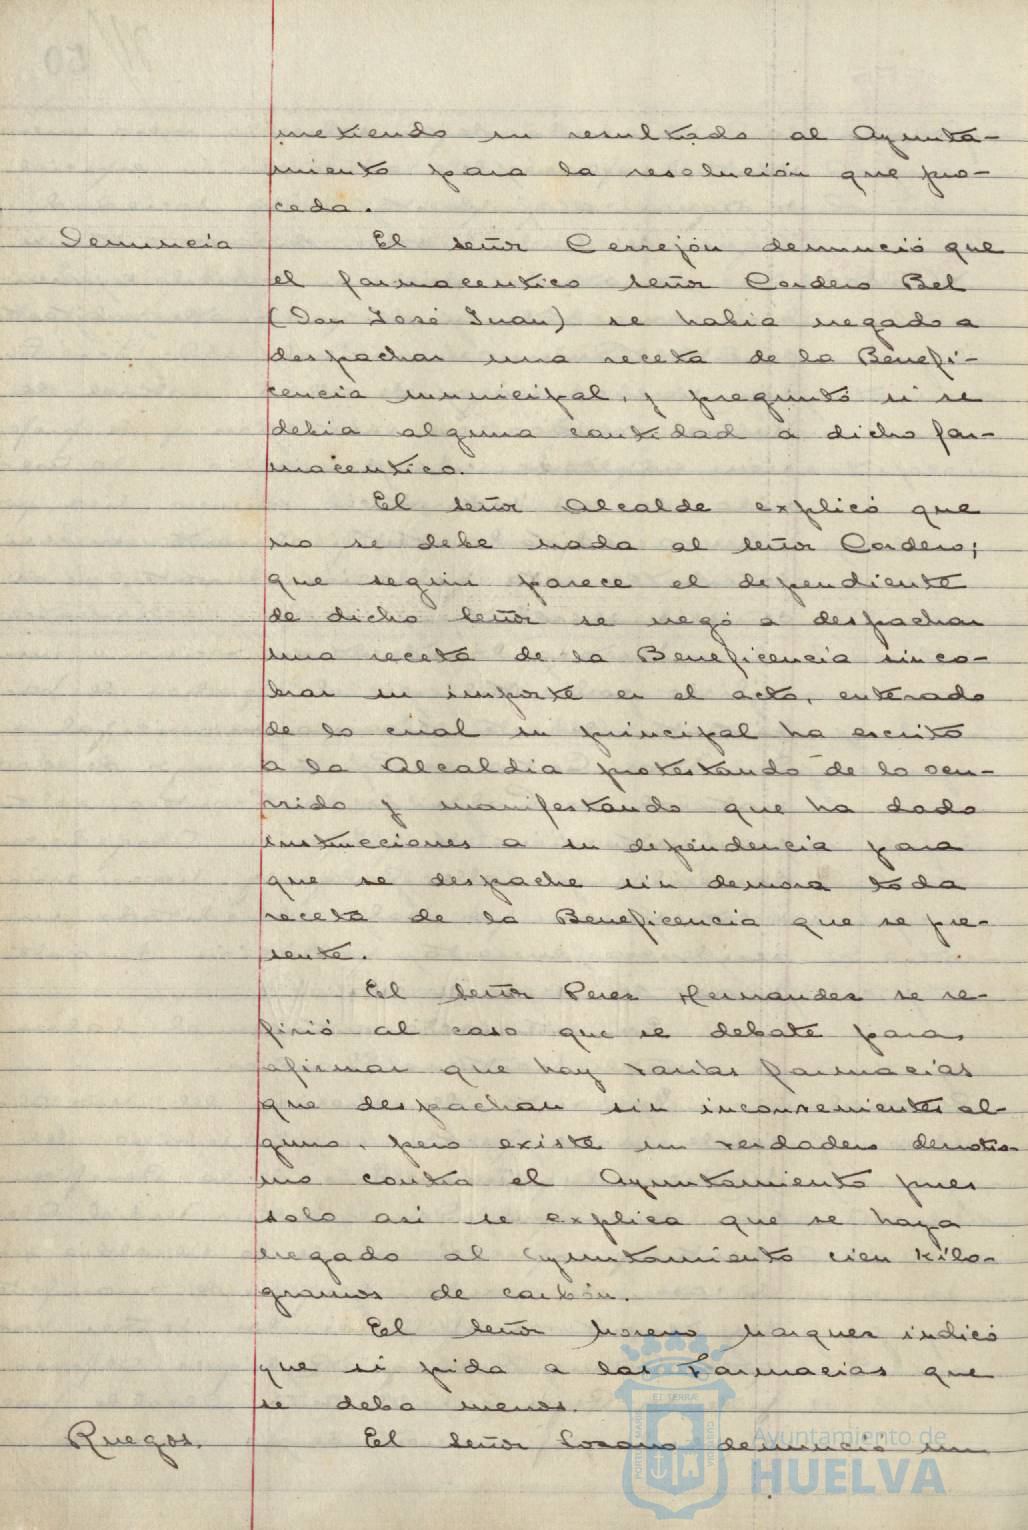 metiendo su resultado al Ayunta-
miento para la resolución que pro-
ceda.
Denuncia
El señor Cerrejón denunció que
el farmaceutico señor Cordero Bel
(Don José Juan) se habia negado a
despachar una receta de la Benefi-
cencia municipal, y preguntó si se
debia alguna cantidad a dicho far-
maceutico.
El señor Alcalde explicó que
no se debe nada al señor Cordero;
que según parece el dependiente
de dicho señor se negó a despachar
una receta de la Beneficencia sin co-
brar su importe en el acto, enterado
de lo cual su principal ha escrito
a la Alcaldia protestando de lo ocu-
rrido y manifestando que ha dado
instrucciones a su dependencia para
que se despache sin demora toda
receta de la Beneficencia que se pre-
sente.
El señor Perez Hernandez se re-
firió al caso que se debate para
afirmar que hay varias farmacias
que despachan sin inconveniente al-
guno, pero existe un verdadero
contra el Ayuntamiento pues
solo asi se explica que se haya
negado al Ayuntamiento cien kilo-
gramos de carbón.
El señor Moreno Marquez indicó
que si pida a las Farmacias que
se deba menos.
Ruegos.
El señor Lozano denunció un
PORTUS MARIS
ET TERRÆ
CUSTODIA
Ayuntamiento de
HUELVA